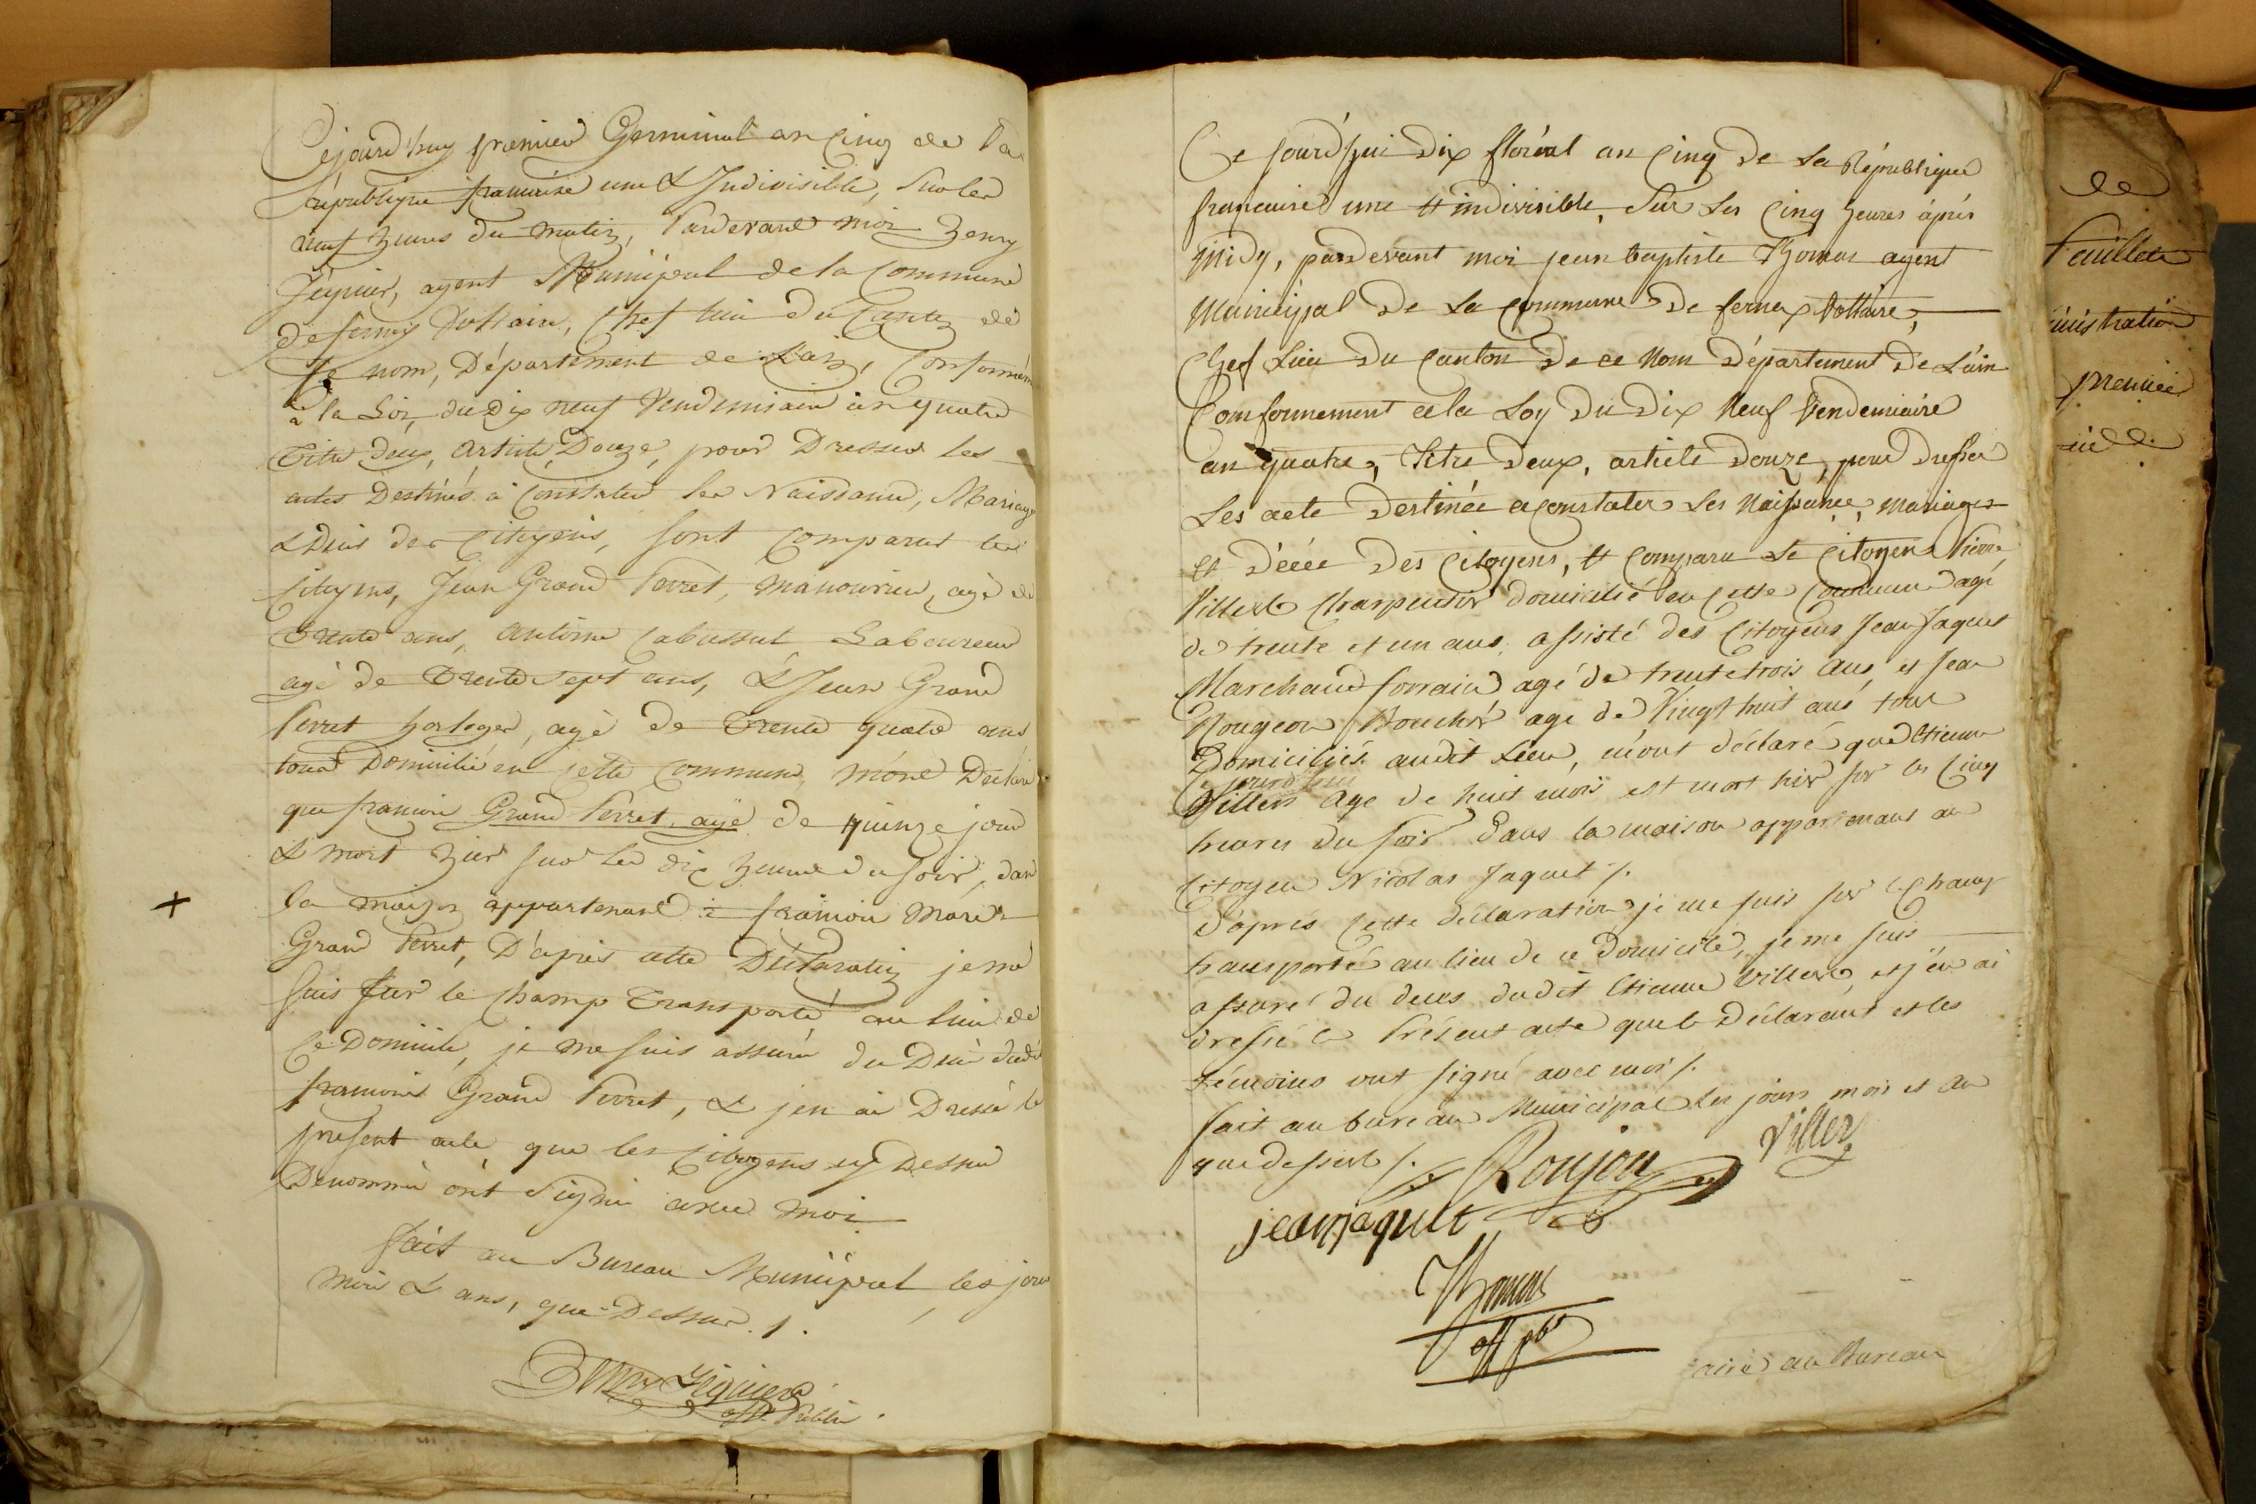 Cejourdhuy premier Germinal an Cinq de la
république francaise une & Indivisible, sur les
neuf heures du matin, Pardevant moi henry
agent Municipal de la Commune
de ferney Voltaire, Chef lieu du Canton de
Ce nom, Département de Lain, Conformém
a la Loi, du Dix neuf Vendemiaire an quatre
Titre deux, Article Douze, pour Dresser les
actes Destinés a Constater les Naissance, Mariage
& Décès des Citoyens, sont Comparus les
Citoyens, Jean Grand Perret, manouvrier, agé de
trente ans, antoine Cabussat Laboureur
agé de trente sept ans, & Jean Grand
Perret horloger, agé de trente quatre ans
tous Domicilié en Cette Commune, m'ont Déclaré
que francois Grand Perret agé de quinze jour
& mort hier sur les dix heures du soir, dan
la maison appartenant a francois Marie
Grand Perret, D'après cette Déclaration je me
suis sur le Champ Transporté au lieu de
Ce Domicile, je me suis assuré du Décè dudit
francois Grand Perret, & jen ai Dressé le
présent acte que les Citoyens cy Dessus
Dénommé ont Signé avec moi
fait au Bureau Municipal les jour
mois & ans, que Dessus ./.
off. Public
Ce jourd'hui dix floréal an Cinq de la République
francaise une et indivisible, Sur les Cinq heures après
midy, pardevant moi jean baptiste Thomas agent
Municipal de la Commune de fernex Voltaire,
Chef Lieu du Canton de ce Nom département de L'ain
Conformement a la Loy du dix Neuf Vendemiaire
an quatre, Titre deux, article douze, pour dresser
Les acte destinée a constater les Naissance, Mariages
et décée des Citoyens, et comparu le Citoyen Pierre
Villert Charpentier domicilié en Cette Commune agé
de trente et un ans, assisté des Citoyens Jean Jaquet
Marchand forrain agé de trente trois ans, et Jean
Rougeon Boucher agé de Vingt huit ans tous
Domiciliés audit Lieu, m'ont déclaré que Etienne
Villers agé de huit mois est mort hier sur les Cinq
heures du soir dans la maison appartenant au
Citoyen Nicolas Jaquet ./.
D'après Cette déclaration je me suis sur le Champ
transporté au lieu de ce domicile, je me suis
assuré du deces dudit Etienne Villert, et j'en ai
dressé le Présent acte que le Déclarant et les
témoins ont signé avec moi ./.
fait au bureau Municipal les jours mois et an
que dessus ./. Roujon Viller
jean jaquet
Thomas
off pbc
au Bureau
de
feuillet
inistration
premier